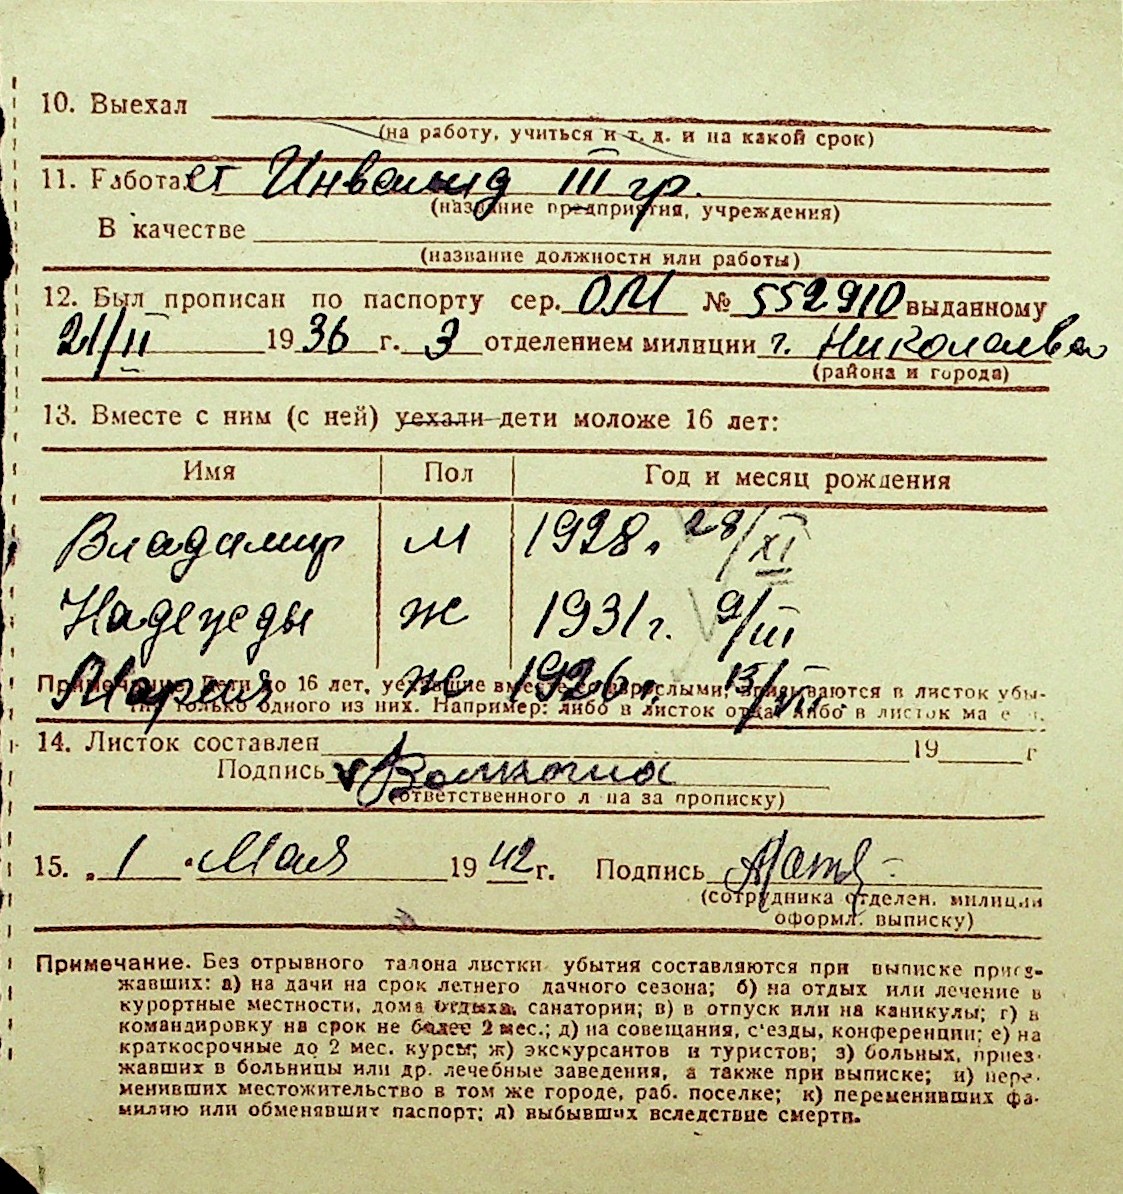 10. Выехал
(на работу, учиться и т. д. и на какой срок)
11. Работает Инвалид III гр.
(название предприятия, учреждения)
В качестве
(название должности или работы)
12. Был прописан по паспорту сер. ОМ № 552910 выданному
21/II 1936 г. 3 отделением милиции г. Николаева
(района и города)
13. Вместе с ним (с ней) уехали дети моложе 16 лет:
Имя Пол Год и месяц рождения
Владимир м 1928. 28/XI
Надежды ж 1931г. 9/III
Мария ж 1926 г. 13/VII.
Примечание. Дети до 16 лет, уехавшие вместе со взрослыми, вписываются в листок убы-
тия только одного из них. Например: либо в листок отца либо в листок матери.
14. Листок составлен 19 г
Подпись
(ответственного лица за прописку)
15. „1 " Мая 1942 г. Подпись
(сотрудника отделен. милиции
оформл. выписку)
Примечание. Без отрывного талона листки убытия составляются при выписке приез-
жавших: а) на дачи на срок летнего дачного сезона; б) на отдых или лечение в
курортные местности, дома отдыха, санатории; в) в отпуск или на каникулы; г) в
командировку на срок не более 2 мес.; д) на совещания, с'езды, конференции; е) на
краткосрочные до 2 мес. курсы; ж) экскурсантов и туристов; з) больных, приез-
жавших в больницы или др. лечебные заведения, а также при выписке; и) пере-
менивших местожительство в том же городе, раб. поселке; к) переменивших фа-
милию или обменявших паспорт; л) выбывших вследствие смерти.